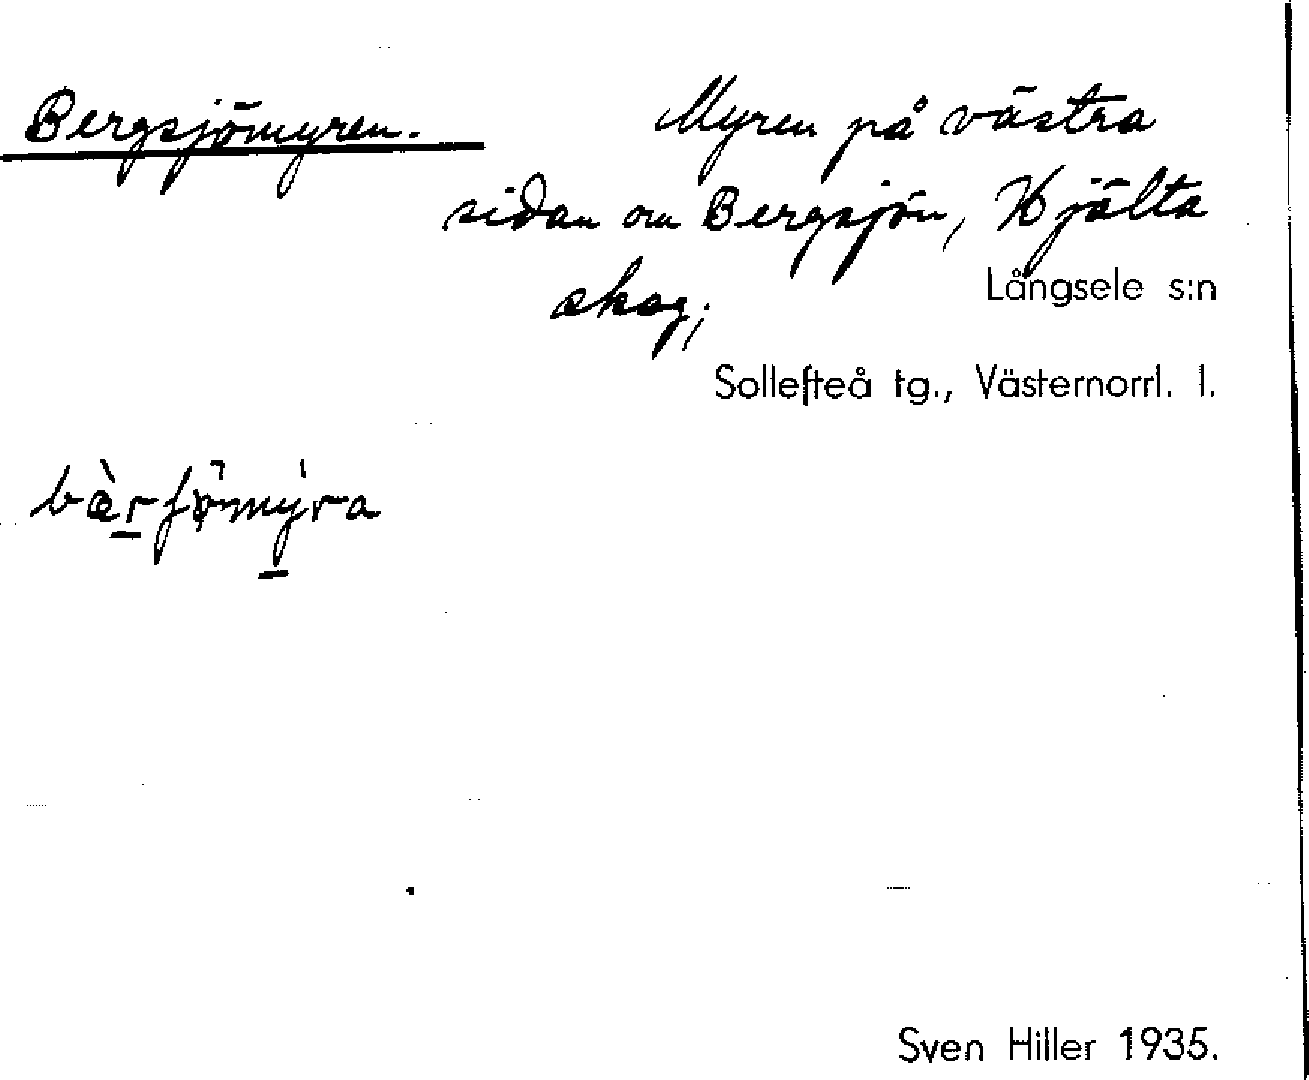 Bergsjömyren. Myren på västra
sidan om Bergsjön, Hjälta
skog;
Långsele s:n
Sollefteå tg., Västernorrl. l.
Sven Hiller 1935.